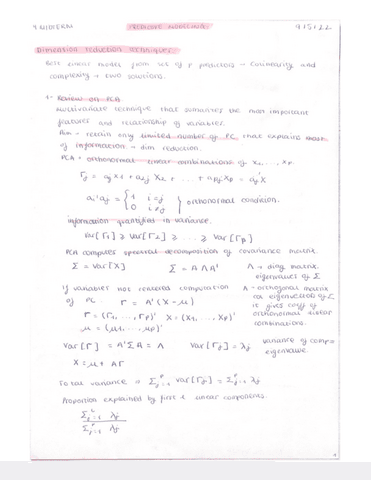 MIDTERM PREDICTIVE MODELLING 9/5/22
Dimension reduction techniques
Best linear model from set of p predictors → colinearity and
complexity → two solutions.
1- Review on PCA
Multivariate technique that summarises the most important
features and relationship of variables.
Aim = retain only limited number of PC that explains most
of information → dim reduction.
PCA = orthonormal linear combinations of x₁, ..., xₚ.
Γⱼ = a₁ⱼ x₁ + a₂ⱼ x₂ + ... + aₚⱼ xₚ = aⱼ'X
aᵢ'aⱼ = { 1 i=j
0 i≠j } orthonormal condition.
information quantified in variance.
Var[Γ₁] ≥ Var[Γ₂] ≥ ... ≥ Var[Γₚ]
PCA computes spectral decomposition of covariance matrix.
Σ = Var[X] Σ = AΛA' Λ → diag matrix.
eigenvalues of Σ
If variables not centered computation A - orthogonal matrix
of PC. Γ = A'(X-μ) eigenvectors of Σ
Γ = (Γ₁, ..., Γₚ)' X = (x₁, ..., xₚ)' gives coeff of
orthonormal linear
μ = (μ₁, ..., μₚ)' combinations.
Var[Γ] = A'ΣA = Λ Var[Γⱼ] = λⱼ variance of comp =
eigenvalue.
X = μ + AΓ
Total variance = Σⱼ₌₁ᵖ Var[Γⱼ] = Σⱼ₌₁ᵖ λⱼ
Proportion explained by first l linear components.
Σⱼ₌₁ˡ λⱼ
Σⱼ₌₁ᵖ λⱼ